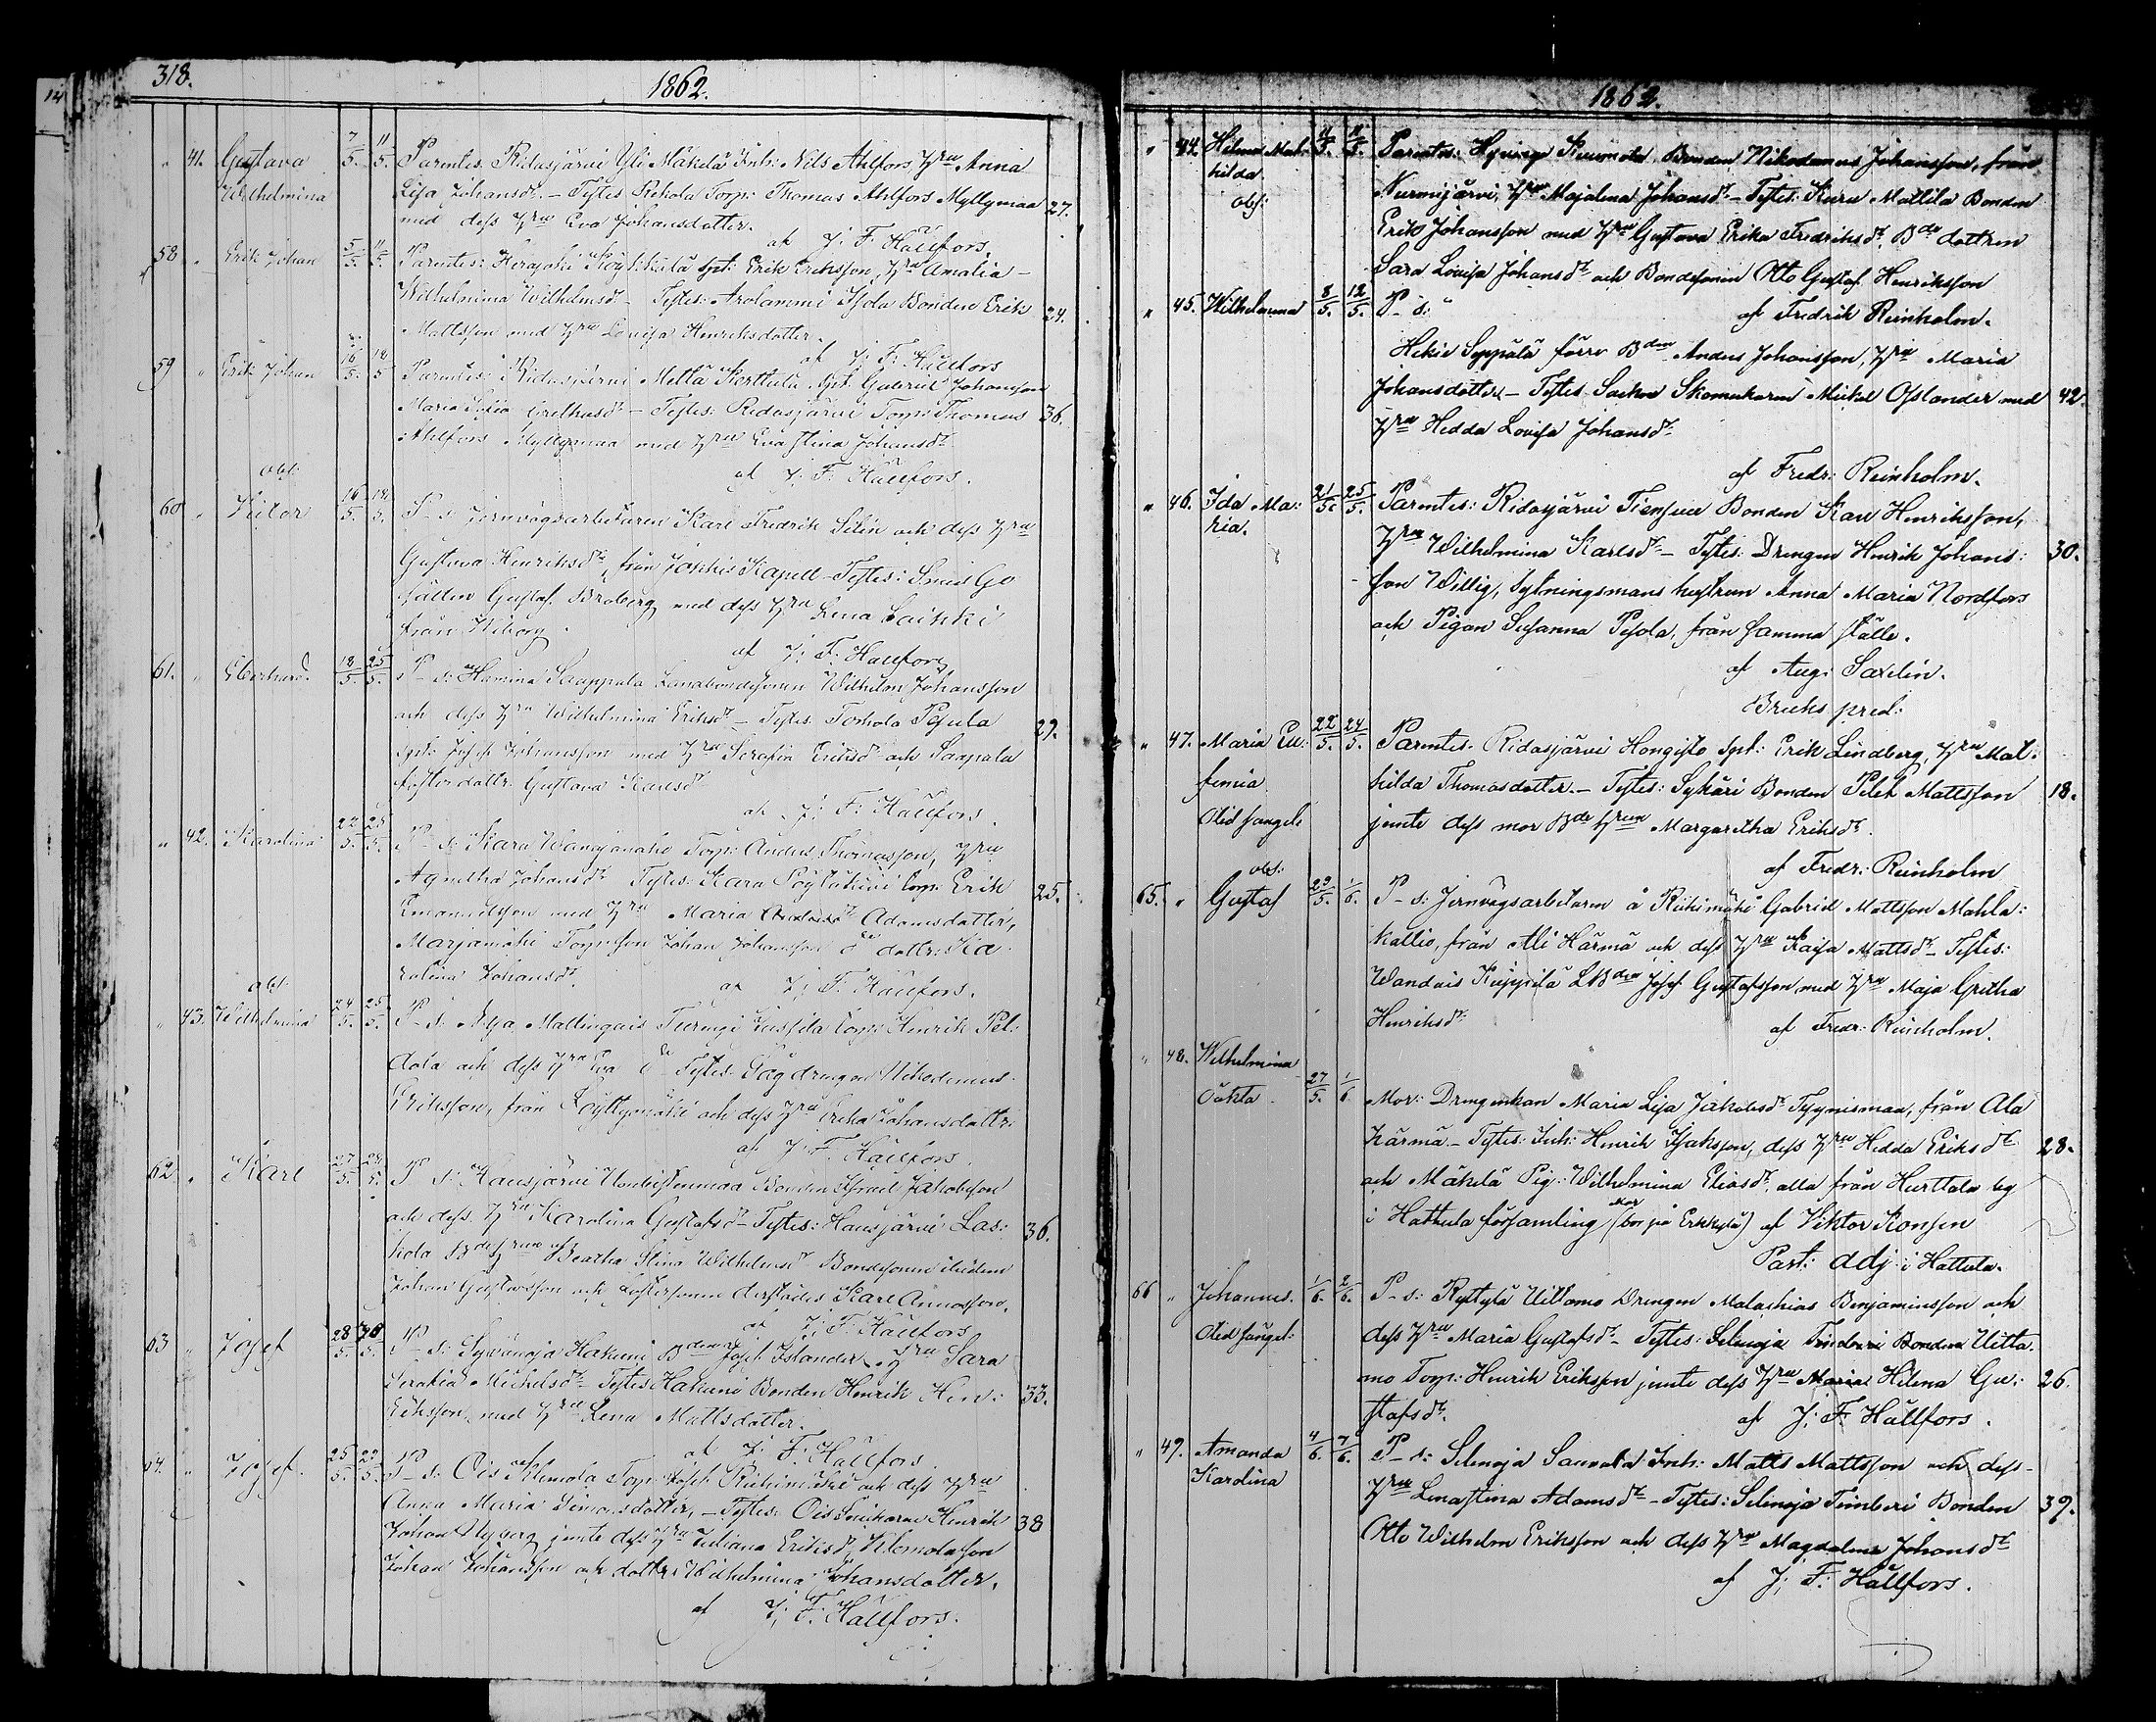 318.
1862.
" 41. Gustava 7/5. 11/5. Parentes: Ridasjärvi Yli Mäkelä Inh: Nils Ahlfors, Hru Anna
Wilhelmina Lisa Johansdr. – Testes Torp: Thomas Ahlfors Myllymaa 27.
med dess Hru Eva Johansdotter.
af J. F. Hällfors.
58 " Erik Johan 5/5. 11/5. Parentes: Erik Eriksson, Hru Amalia
Wilhelmina Wilhelmsdr – Testes: Arolammi Isola Bonden Erik 24.
Mattsson med Hru Lovisa Henriksdotter.
af J. F. Hällfors
59 " Erik Johan 16/5. 18/5 Parentes: Ridasjärvi Gabriel Johansson
Maria Sofia – Testes: Ridasjärvi Torp: Thomas 36.
Ahlfors Myllymaa med Hru Eva Stina Johansdr
af J. F. Hällfors.
obs:
60 " Victor 16/5. 18/5. P – s: Jernvägsarbetaren Karl Fredrik Selin och dess Hru
Gustava Henriksdr, från Jockis Kapell – Testes: Smids Ge
sällen Gustaf Broberg med dess Hru Lena
från Wiborg.
af J. F. Hällfors,
61. " Eberhard. 18/5. 25/5. P – s: Wilhelm Johansson
och dess Hru Wilhelmina Eriksdr – Testes. Torhola Pesula 29.
Josef Johansson med Hru Serafia Eriksdr och
fosterdottr: Gustava Karlsdr
af J. F. Hällfors.
" 42. Karolina 22/5. 25/5. P – s: Kara Torp: Anders Thomasson, Hru
Agnetha Johansdr Testes: Kara Torp: Erik 25.
Emanuelsson med Hru Maria Adamsdotter,
Marjamäki Torparson Johan Johansson o dottr: Ka
rolina Johansdr.
af J. F. Hällfors.
obs:
" 43. Wilhelmina 24/5. 25/5. P – s: Torp: Henrik Pel:
dola och dess Hru Eva Testes: drengen Nikodemus
Eriksson, från och dess Hru Erika Johansdotter
af J. F. Hällfors.
62 " Karl P – s: Hausjärvi Bonden Israel Jakobsson
och dess Hru Karolina Gustafsdr – Testes: Hausjärvi Las: 36.
kola Beatha Stina Wilhelmsdr Bondesonen ibidem
Johan Gustavsson och fostersonen derstädes Karl
af J. F. Hällfors
63 " Josef 28/5. P – s: Hakumi Josef Islander, Hru Sara
Serafia Michelsdr – Testes Hakumi Bonden Henrik Hen: 33.
riksson, med Hru Lena Mattsdotter.
af J. F. Hällfors.
64. " Josef. 25/5. P – s: Ois Klemola Torp: Josef Riihimäki och dess Hru
Anna Maria Simonsdotter, – Testes: Ois Henrik 38
Johan Nyberg jemte dess Hru Juliana Eriksdr, Klemola son
Johan Johansson och dottr: Wilhelmina Johansdotter.
af J. F. Hällfors.
1862.
" 44. Hilma Mat: Parentes: Hyvinge Bonden Nikodemus Johansson, från
hilda. Nurmijärvi, Hru Majalena Johansdr – Testes: Kuru Mattila Bonden
obs: Erik Johansson med Hru Gustava Erika Fredriksdr, Bde dottren
Sara Lovisa Johansdr och Bondesonen Otto Gustaf Henriksson
" 45. Wilhelmina 8/5. 12/5. P – s: af Fredrik Reinholm.
Hikiä Seppälä förre Bden Anders Johansson, Hru Maria
Johansdotter – Testes Skomakaren Mickel Oslander med 42.
Hru Hedda Lovisa Johansdr
af Fredr: Reinholm.
" 46. Ida Ma: 21/5. 25/5. Parentes: Ridasjärvi Tiensuu Bonden Karl Henriksson,
ria. Hru Wilhelmina Karlsdr – Testes: Drengen Henrik Johans: 30.
son Willig, Sytningsmans hustrun Anna Maria Nordfors
och Pigan Susanna Pesola, från samma ställe.
af Aug: Saxelin.
Bruks pred:
" 47. Maria Eu: 22/5. 24/5. Parentes. Ridasjärvi Hongisto Erik Lindberg, Hru Mat:
femia hilda Thomasdotter. – Testes: Sykäri Bonden Mattsson 18.
jemte dess mor Bde Hrun Margaretha Eriksdr.
af Fredr: Reinholm
obs:
65. " Gustaf 29/5. 1/6. P – s: Jernvägsarbetaren å Riihimäki Gabriel Mattsson Mahla:
kallio, från Ali Härmä och dess Hru Kaisa Mattsdr – Testes:
Wandais LBden Josef Gustafsson med Hru Maja Gretha
Henriksdr
af Fredr: Reinholm.
" 48. Wilhelmina 27/5. 1/6 Mor: Drengenkan Maria Lisa Jakobsdr från Ala
Härmä. – Testes: Inh: Henrik Isaksson, dess Hru Hedda Eriksdr 28.
och Mäkelä Pig: Wilhelmina Eliasdr, alla från Hurttala by
i Hattula församling (Mor bor på Erkkylä) af Viktor Konsen
Past: adj: i Hattula.
66 " Johannes. 1/6. 2/6. P – s: Ryttylä Uittamo Drengen Malachias Benjaminsson och
dess Hru Maria Gustafsdr – Testes: Uitta:
mo Torp: Henrik Eriksson jemte dess Hru Helena Gu: 26.
stafsdr.
af J. F. Hällfors.
" 49. Amanda 4/6. 7/6. P – s: Selenoja Inh: Matts Mattsson och dess
Karolina Hru Lenastina Adamsdr – Testes: Selinoja Timberi Bonden 39.
Otto Wilhelm Eriksson och dess Hru Magdalena Johansdr
af J. F. Hällfors.